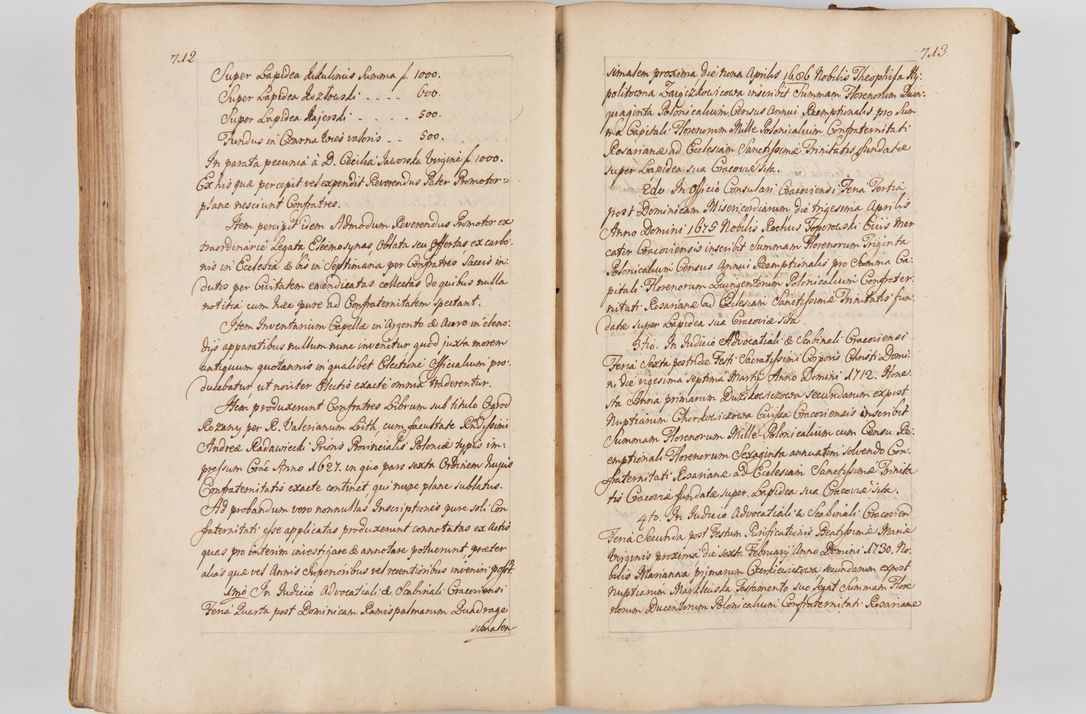 712
Super Lapidea Kukulinis Summa f. 1000.
Super Lapidea Kozłowski . . . . 600.
Super Lapidea Kajerski . . . . 500.
Fundus in Czarna Wies valoris . . 500.
In parata pecunia à D. Cæcilia Jaworska Virgine f. 1000.
Ex his quæ percepit vel expendit Reverendus Pater Promotor
plane nesciunt Confratres.
Item percipit idem Admodum Reverendus Promotor ex
traordinarie Legata Eleemosynas Oblata seu Offertas ex carbo
nis in Ecclesia & bis in Septimana per Confratres Saccis in
dutos per Civitatem emendicatas collectas de quibus nulla
notitia cum hæc pure ad Confraternitatem spectant.
Item Inventarium Capellæ in Argento & Auro in cleno
dijs apparatibus nullum nunc invenitur quod juxta morem
antiquum quotannis in qualibet Electione Officialium pro
ducebatur ut noviter Electis exacte omnia traderentur.
Item produxerunt Confratres Librum sub titulo Ogrod
Rozany per R. Valerianum Lith cum facultate Rndissimi
Andreæ Radawiecki Prioris Provincialis Poloniæ typis im
pressum Crac Anno 1627. in quo pars sexta Ordinem hujus
Confraternitatis exacte continet qui nunc plane sublatus.
Ad probandum vero nonnullas Inscriptiones pure soli Con
fraternitati esse applicatas produxerunt connotatas ex Actis
quas pro interim investigare & annotare potuerunt præter
alias quæ vel Annis Superioribus vel recentioribus inveniri posst.
1mo In Judicio Advocatiali & Scabinali Cracoviensi
Feria Quarta post Dominicam Ramispalmarum Quadrage
simalem
713
simalem proxima die nona Aprilis 1686 Nobilis Theophila Hy
politowna Targiczkowiczowa inscribit Summam Florenorum Quin
quaginta Polonicalium Census Annui Reemptionalis pro Sum
ma Capitali Florenorum Mille Polonicalium Confraternitati
Rosarianæ ad Ecclesiam Sanctissimæ Trinitatis fundatæ
super Lapidea sua Cracoviæ Sita.
2do In Officio Consulari Cracoviensi Feria Tertia
post Dominicam Misericordiarum die trigesima Aprilis
Anno Domini 1675 Nobilis Rochus Toporowski Civis Mer
cator Cracoviensis inscribit Summam Florenorum Triginta
Polonicalium Census Annui Reemptionalis pro Summa Ca
pitali Florenorum Quingentorum Polonicalium Confrater
nitati Rosarianæ ad Ecclesiam Sanctissimæ Trinitatis fun
datæ super Lapidea sua Cracoviæ Sita.
3tio. In Judicio Advocatiali & Scabinali Cracoviensi
Feria Sexta post de Festi Sacratissimi Corporis Christi Domi
ni die vigesima septima Martij Anno Domini 1712. Hone
sta Anna primarum secundarum expost
Nuptiarum Civissa Cracoviensis inscribit
Summam Florenorum Mille Polonicalium cum Censu Re
emptionali Florenorum Sexaginta annuatim solvendo Con
fraternitati Rosarianæ ad Ecclesiam Sanctissimæ Trinita
tis Cracoviæ fundatæ super Lapidea sua Cracoviæ Sita.
4to. In Judicio Advocatiali & Scabinali Cracovien
Feria Secunda post Festum Purificationis Beatissimæ Mariæ
Virginis proxima die sexta Februarij Anno Domini 1730. No
bilis Marianna primarum secundarum expost
Nuptiarum Testamento suo legat Summam Flore
norum Ducentorum Polonicalium Confraternitati Rosarianæ